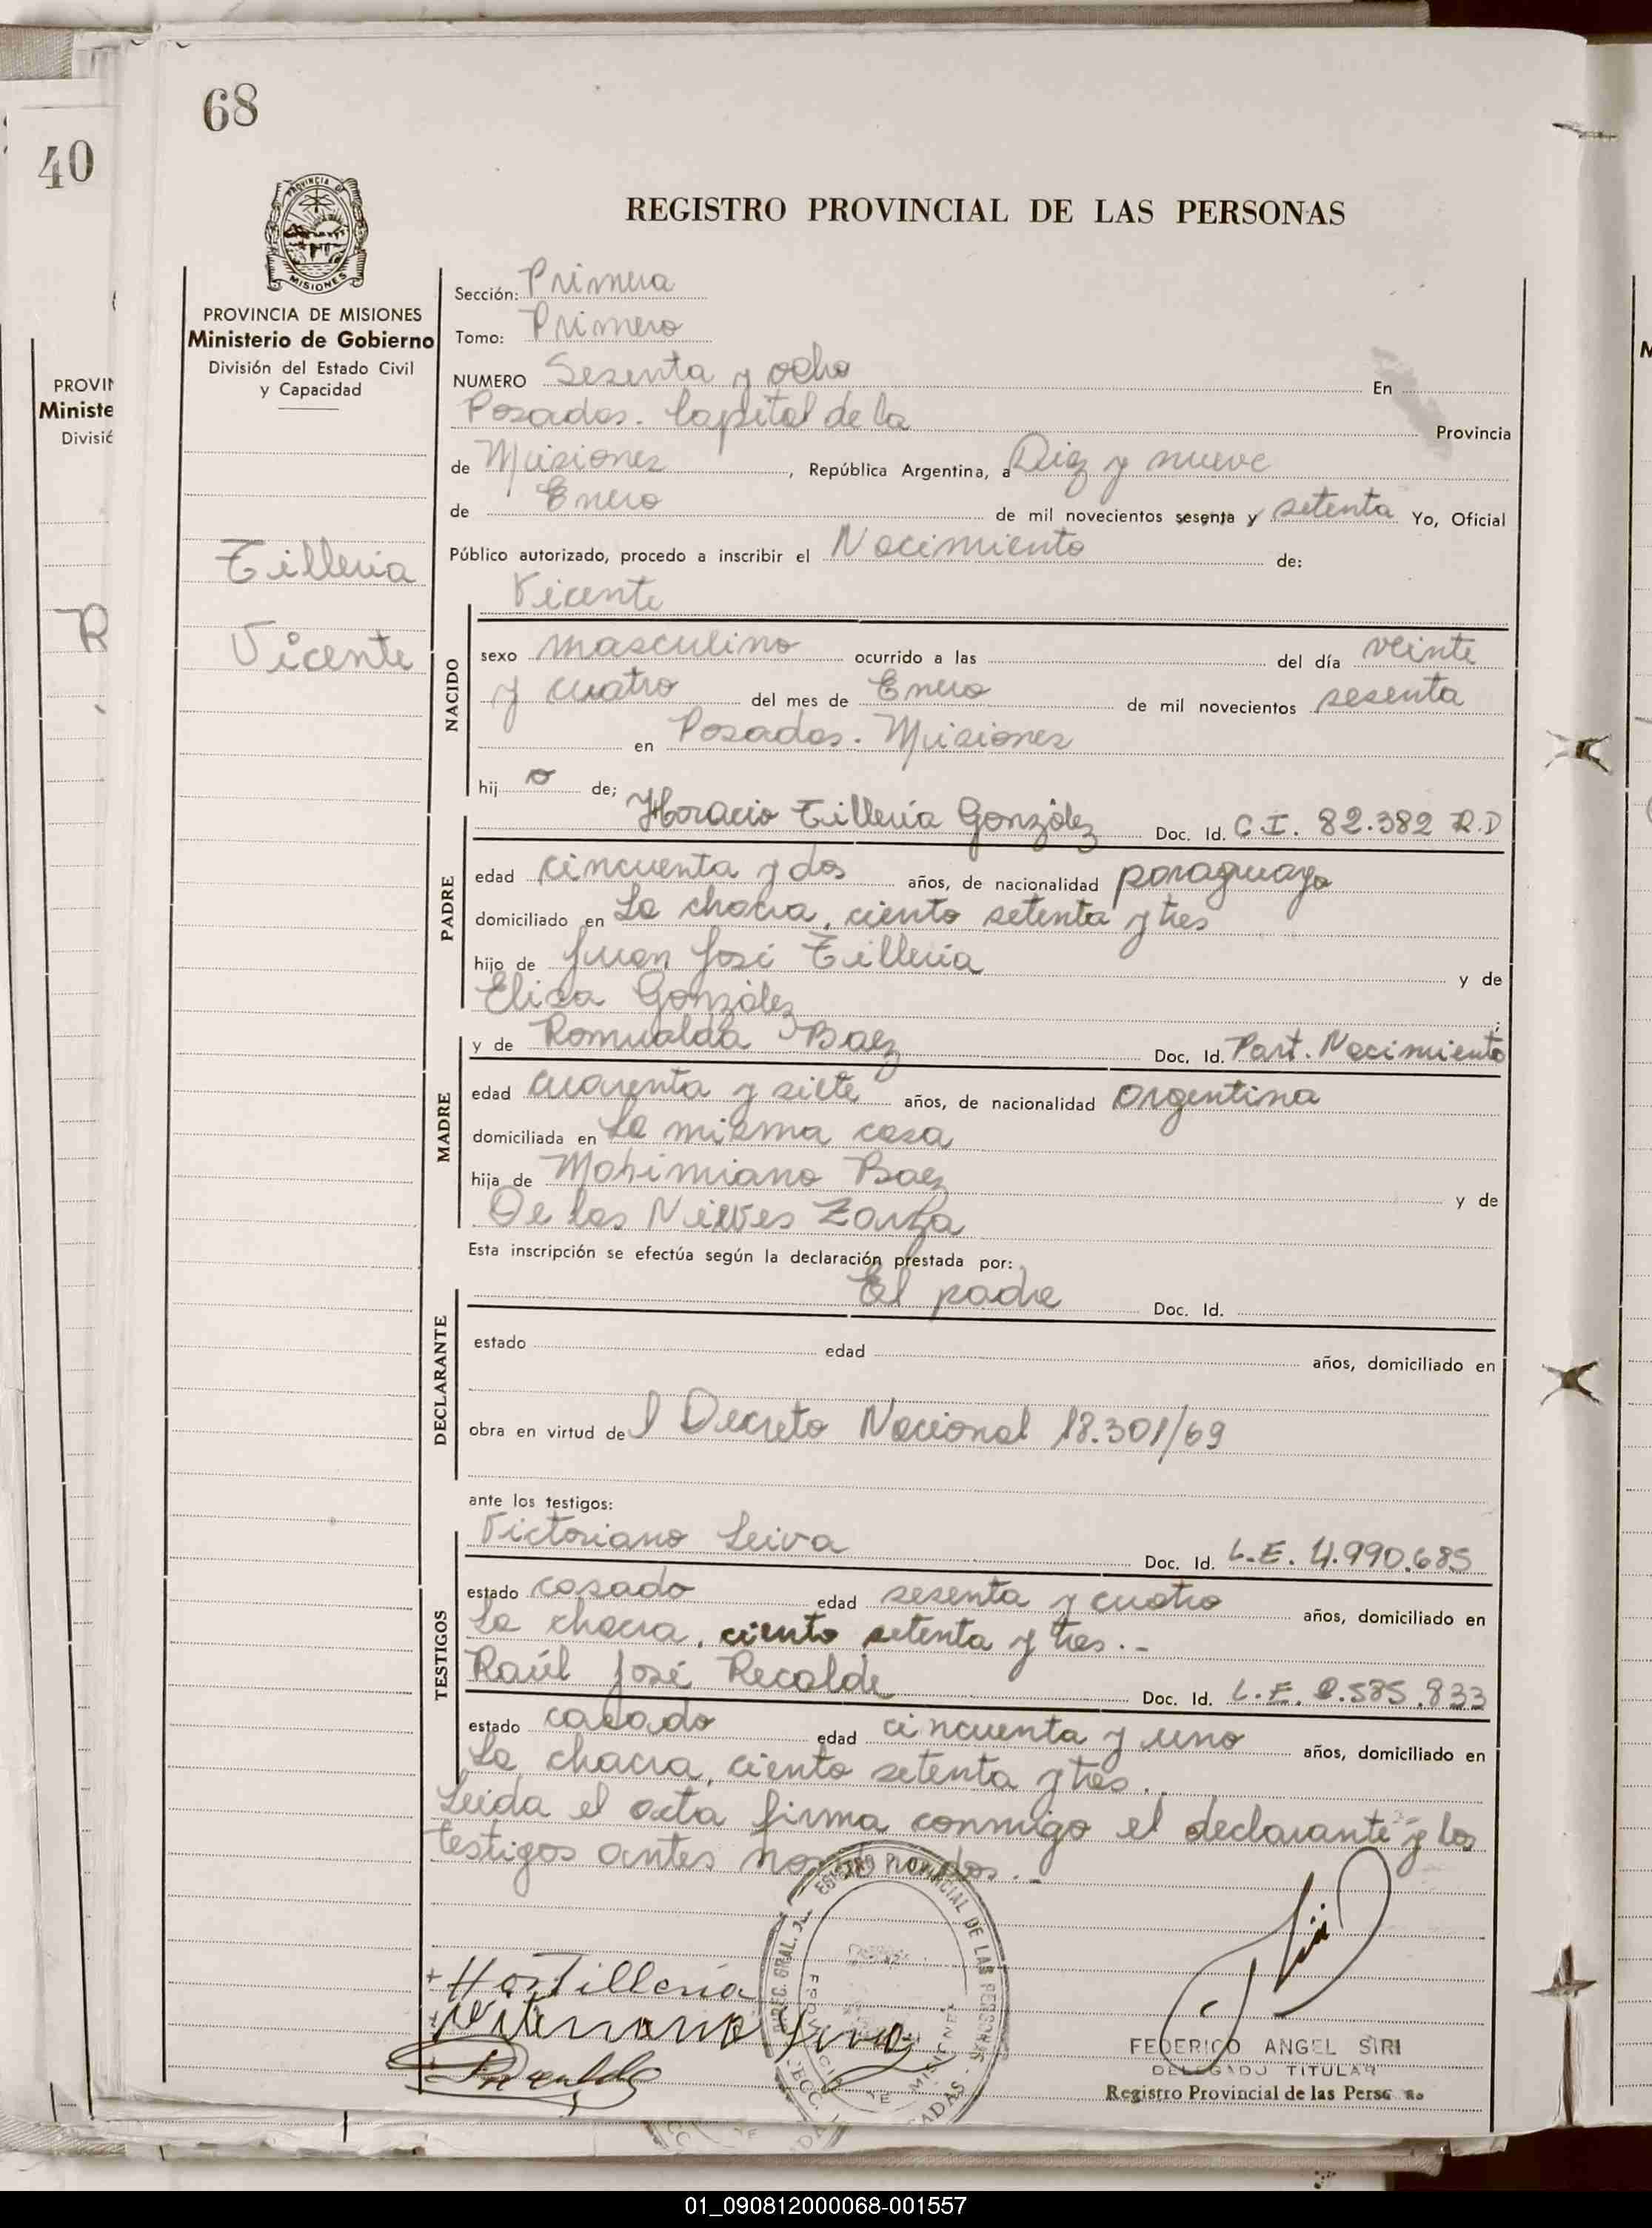 68
40
REGISTRO PROVINCIAL DE LAS PERSONAS
PROVINCIA DE MISIONES
Ministerio de Gobierno
División del Estado Civil
y Capacidad
Tillería
Vicente
PROVIN
Ministe
Divisió
R
Sección: Primera
Tomo: Primero
NUMERO Sesenta y ocho En
Posadas. Capital de la Provincia
de Misiones, República Argentina, a Diez y nueve
de Enero de mil novecientos sesenta y setenta Yo, Oficial
Público autorizado, procedo a inscribir el Nacimiento de:
Vicente
NACIDO
sexo masculino ocurrido a las del día veinte
y cuatro del mes de Enero de mil novecientos sesenta
en Posadas. Misiones
hij o de;
Horacio Tillería González Doc. Id. C.I. 82.382 R.P
PADRE
edad cincuenta y dos años, de nacionalidad paraguaya
domiciliado en La chacra, ciento setenta y tres
hijo de Juan José Tillería y de
Elisa González
y de Romualda Baez Doc. Id. Part. Nacimiento
MADRE
edad cuarenta y siete años, de nacionalidad argentina
domiciliada en La misma casa
hija de Baez y de
De las Nieves Zarza
Esta inscripción se efectúa según la declaración prestada por:
El padre Doc. Id.
DECLARANTE
estado edad años, domiciliado en
obra en virtud del Decreto Nacional 18.301/69
ante los testigos:
Victoriano Leiva Doc. Id. L.E. 4.990.685
TESTIGOS
estado casado edad sesenta y cuatro años, domiciliado en
La chacra, ciento setenta y tres.-
Raúl José Recalde Doc. Id. L.E. .585.833
estado casado edad cincuenta y uno años, domiciliado en
La chacra, ciento setenta y tres.
Leida el acta firma conmigo el declarante y los
testigos antes nombrados.-
Hor Tilleria
FEDERICO ANGEL SIRI
DELEGADO TITULAR
Registro Provincial de las Perso as
01_090812000068-001557